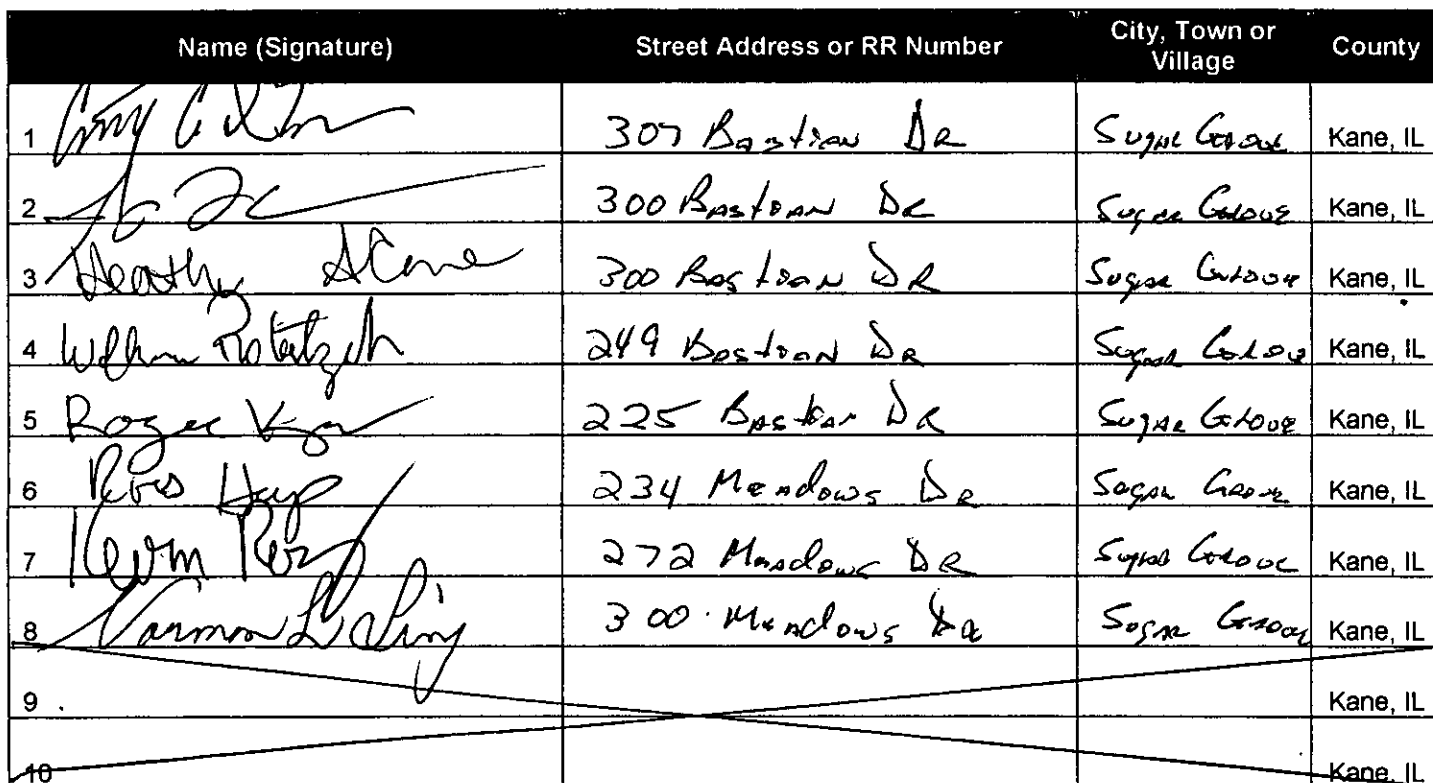 Name (Signature) Street Address or RR Number City, Town or Village County
1 307 Bastian DR Sugar Grove Kane, IL
2 300 Bastian DR Sugar Grove Kane, IL
3 Heather 300 Bastian DR Sugar Grove Kane, IL
4 249 Bastian DR Sugar Grove Kane, IL
5 Roger 225 Bastian DR Sugar Grove Kane, IL
6 234 Meadows DR Sugar Grove Kane, IL
7 Kevin 272 Meadows DR Sugar Grove Kane, IL
8 300 Meadows DR Sugar Grove Kane, IL
9 Kane, IL
10 Kane, IL